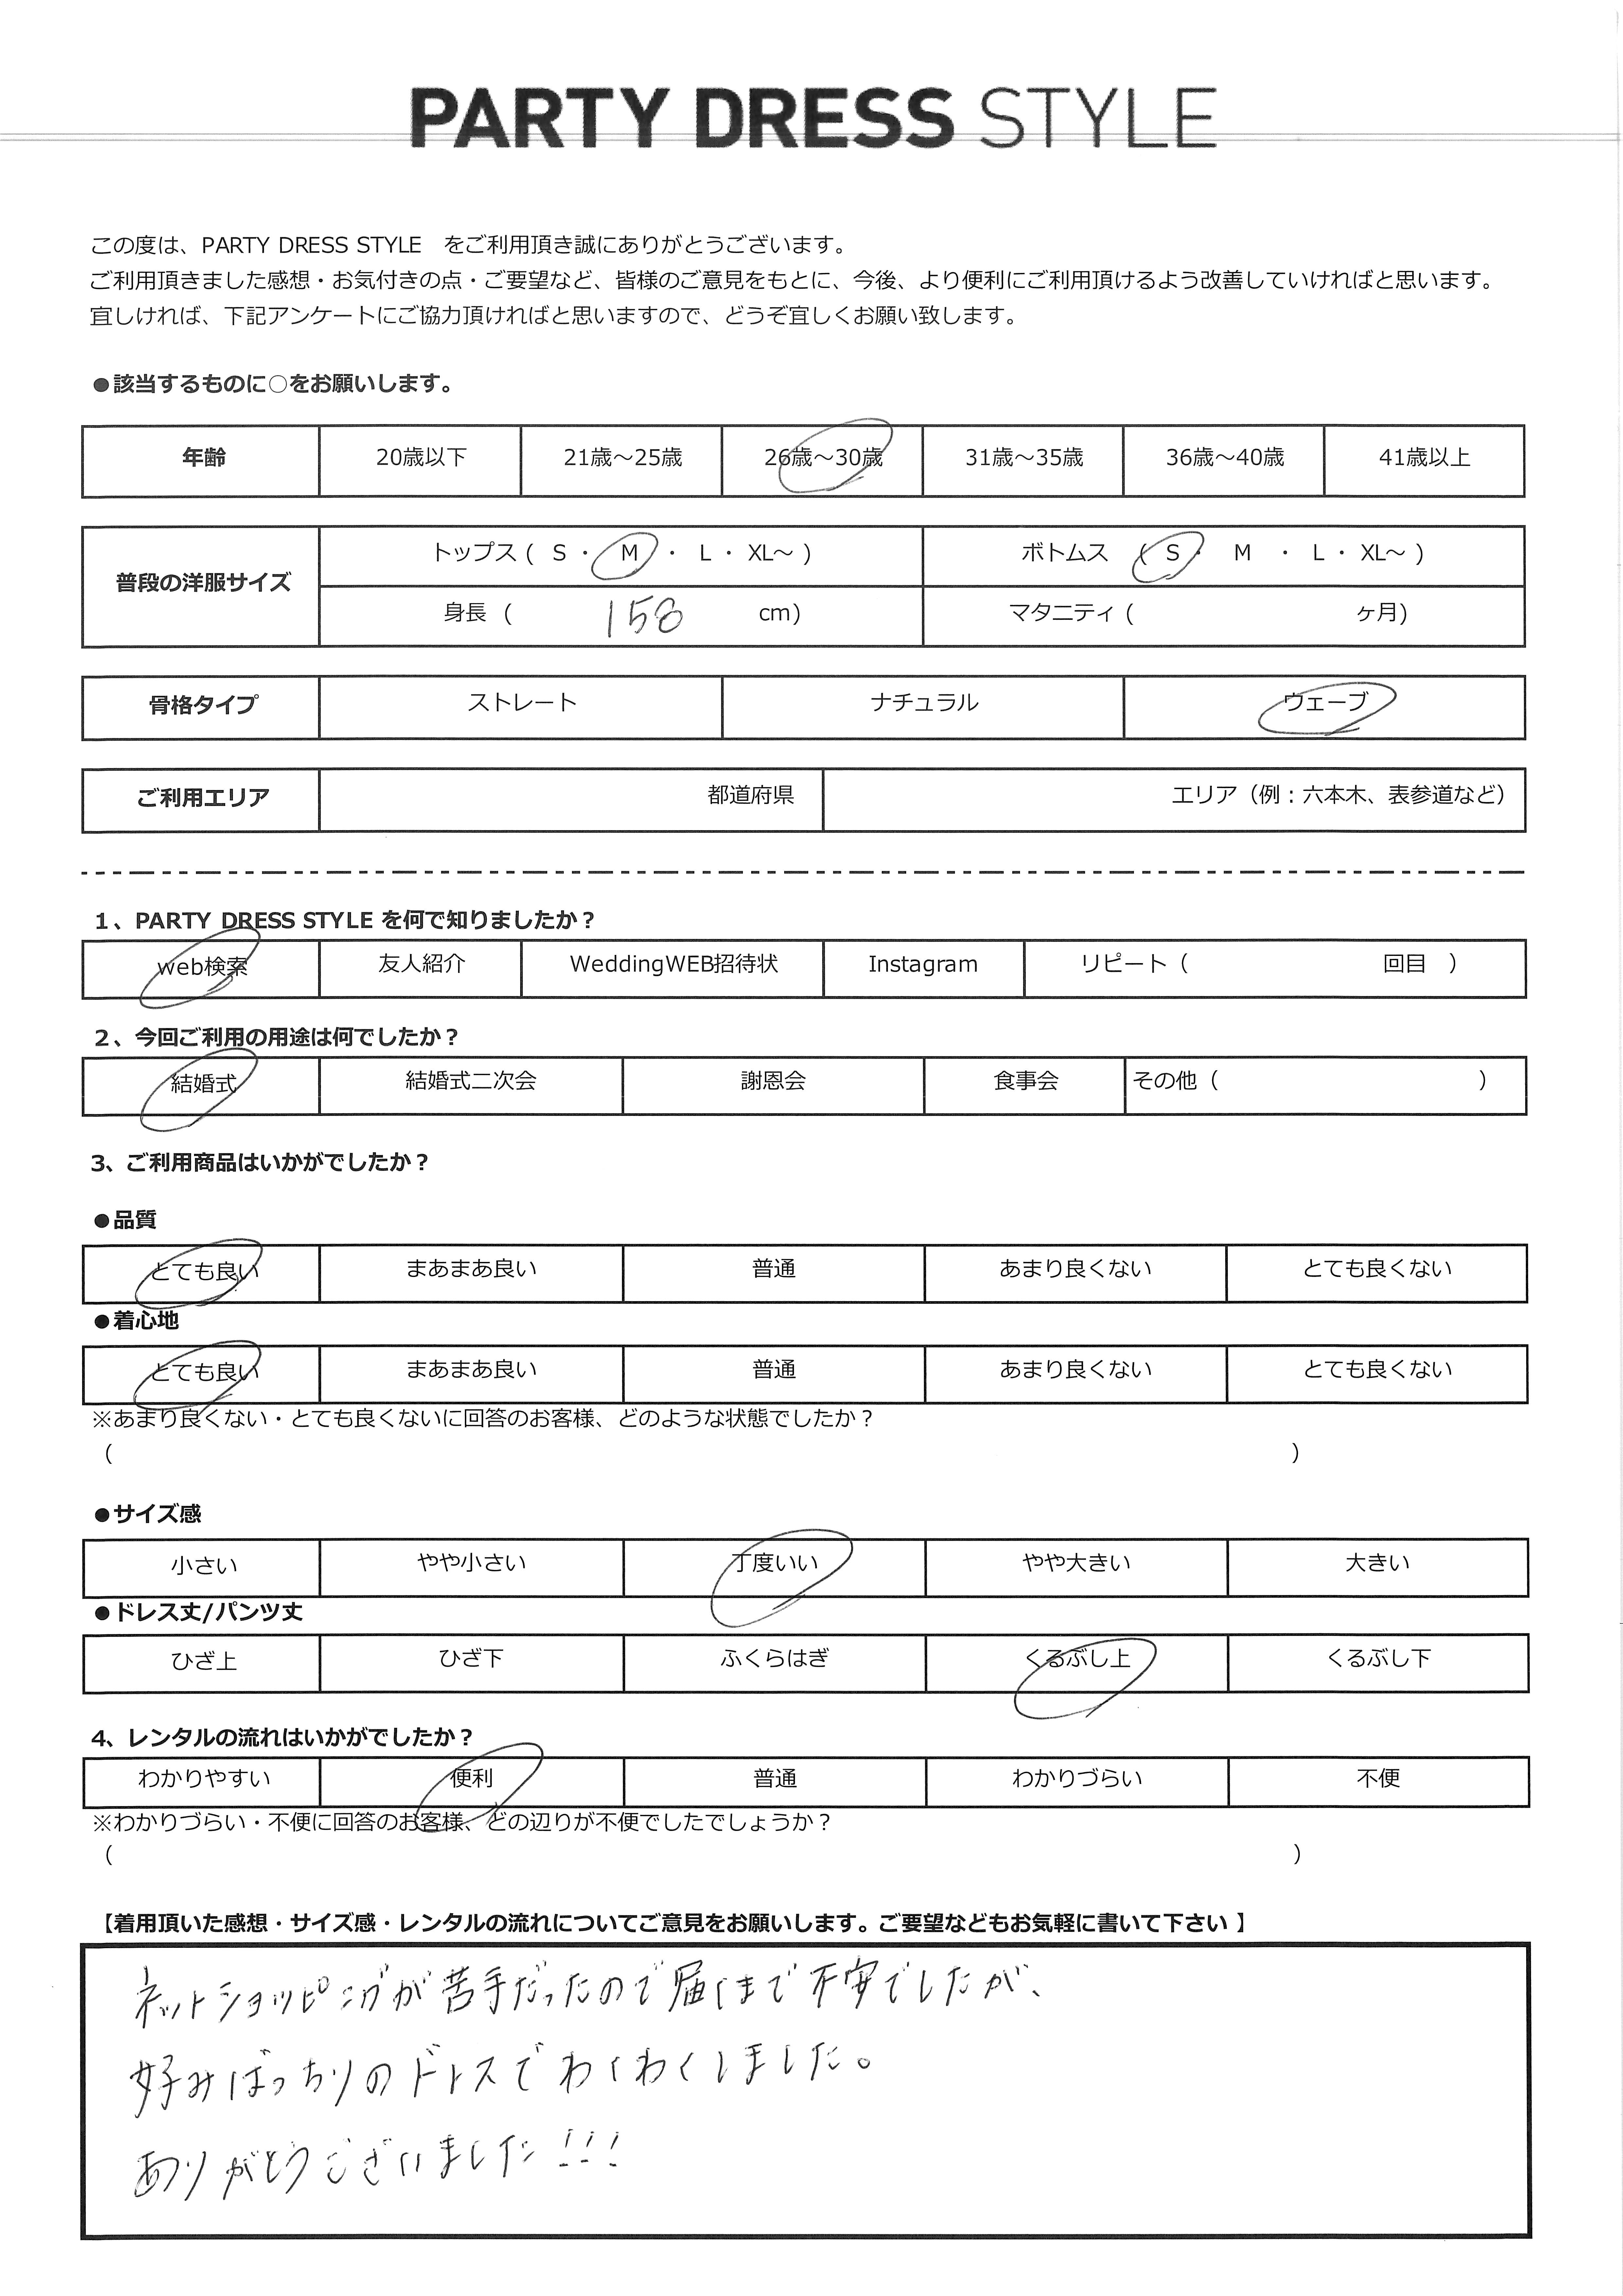 PARTY DRESS STYLE
この度は、PARTY DRESS STYLE　をご利用頂き誠にありがとうございます。
ご利用頂きました感想・お気付きの点・ご要望など、皆様のご意見をもとに、今後、より便利にご利用頂けるよう改善していければと思います。
宜しければ、下記アンケートにご協力頂ければと思いますので、どうぞ宜しくお願い致します。
●該当するものに○をお願いします。
年齢 20歳以下 21歳～25歳 26歳～30歳 31歳～35歳 36歳～40歳 41歳以上
普段の洋服サイズ トップス ( S ・ M ・ L ・ XL～ ) ボトムス ( S ・ M ・ L ・ XL～ )
身長 ( 158 cm) マタニティ ( ヶ月)
骨格タイプ ストレート ナチュラル ウェーブ
ご利用エリア 都道府県 エリア（例：六本木、表参道など）
1、PARTY DRESS STYLE を何で知りましたか？
web検索 友人紹介 WeddingWEB招待状 Instagram リピート（ 回目 ）
2、今回ご利用の用途は何でしたか？
結婚式 結婚式二次会 謝恩会 食事会 その他（ ）
3、ご利用商品はいかがでしたか？
●品質
とても良い まあまあ良い 普通 あまり良くない とても良くない
●着心地
とても良い まあまあ良い 普通 あまり良くない とても良くない
※あまり良くない・とても良くないに回答のお客様、どのような状態でしたか？
（ ）
●サイズ感
小さい やや小さい 丁度いい やや大きい 大きい
●ドレス丈/パンツ丈
ひざ上 ひざ下 ふくらはぎ くるぶし上 くるぶし下
4、レンタルの流れはいかがでしたか？
わかりやすい 便利 普通 わかりづらい 不便
※わかりづらい・不便に回答のお客様、どの辺りが不便でしたでしょうか？
（ ）
【着用頂いた感想・サイズ感・レンタルの流れについてご意見をお願いします。ご要望などもお気軽に書いて下さい 】
ネットショッピングが苦手だったので届くまで不安でしたが、
好みばっちりのドレスでわくわくしました。
ありがとうございました!!!